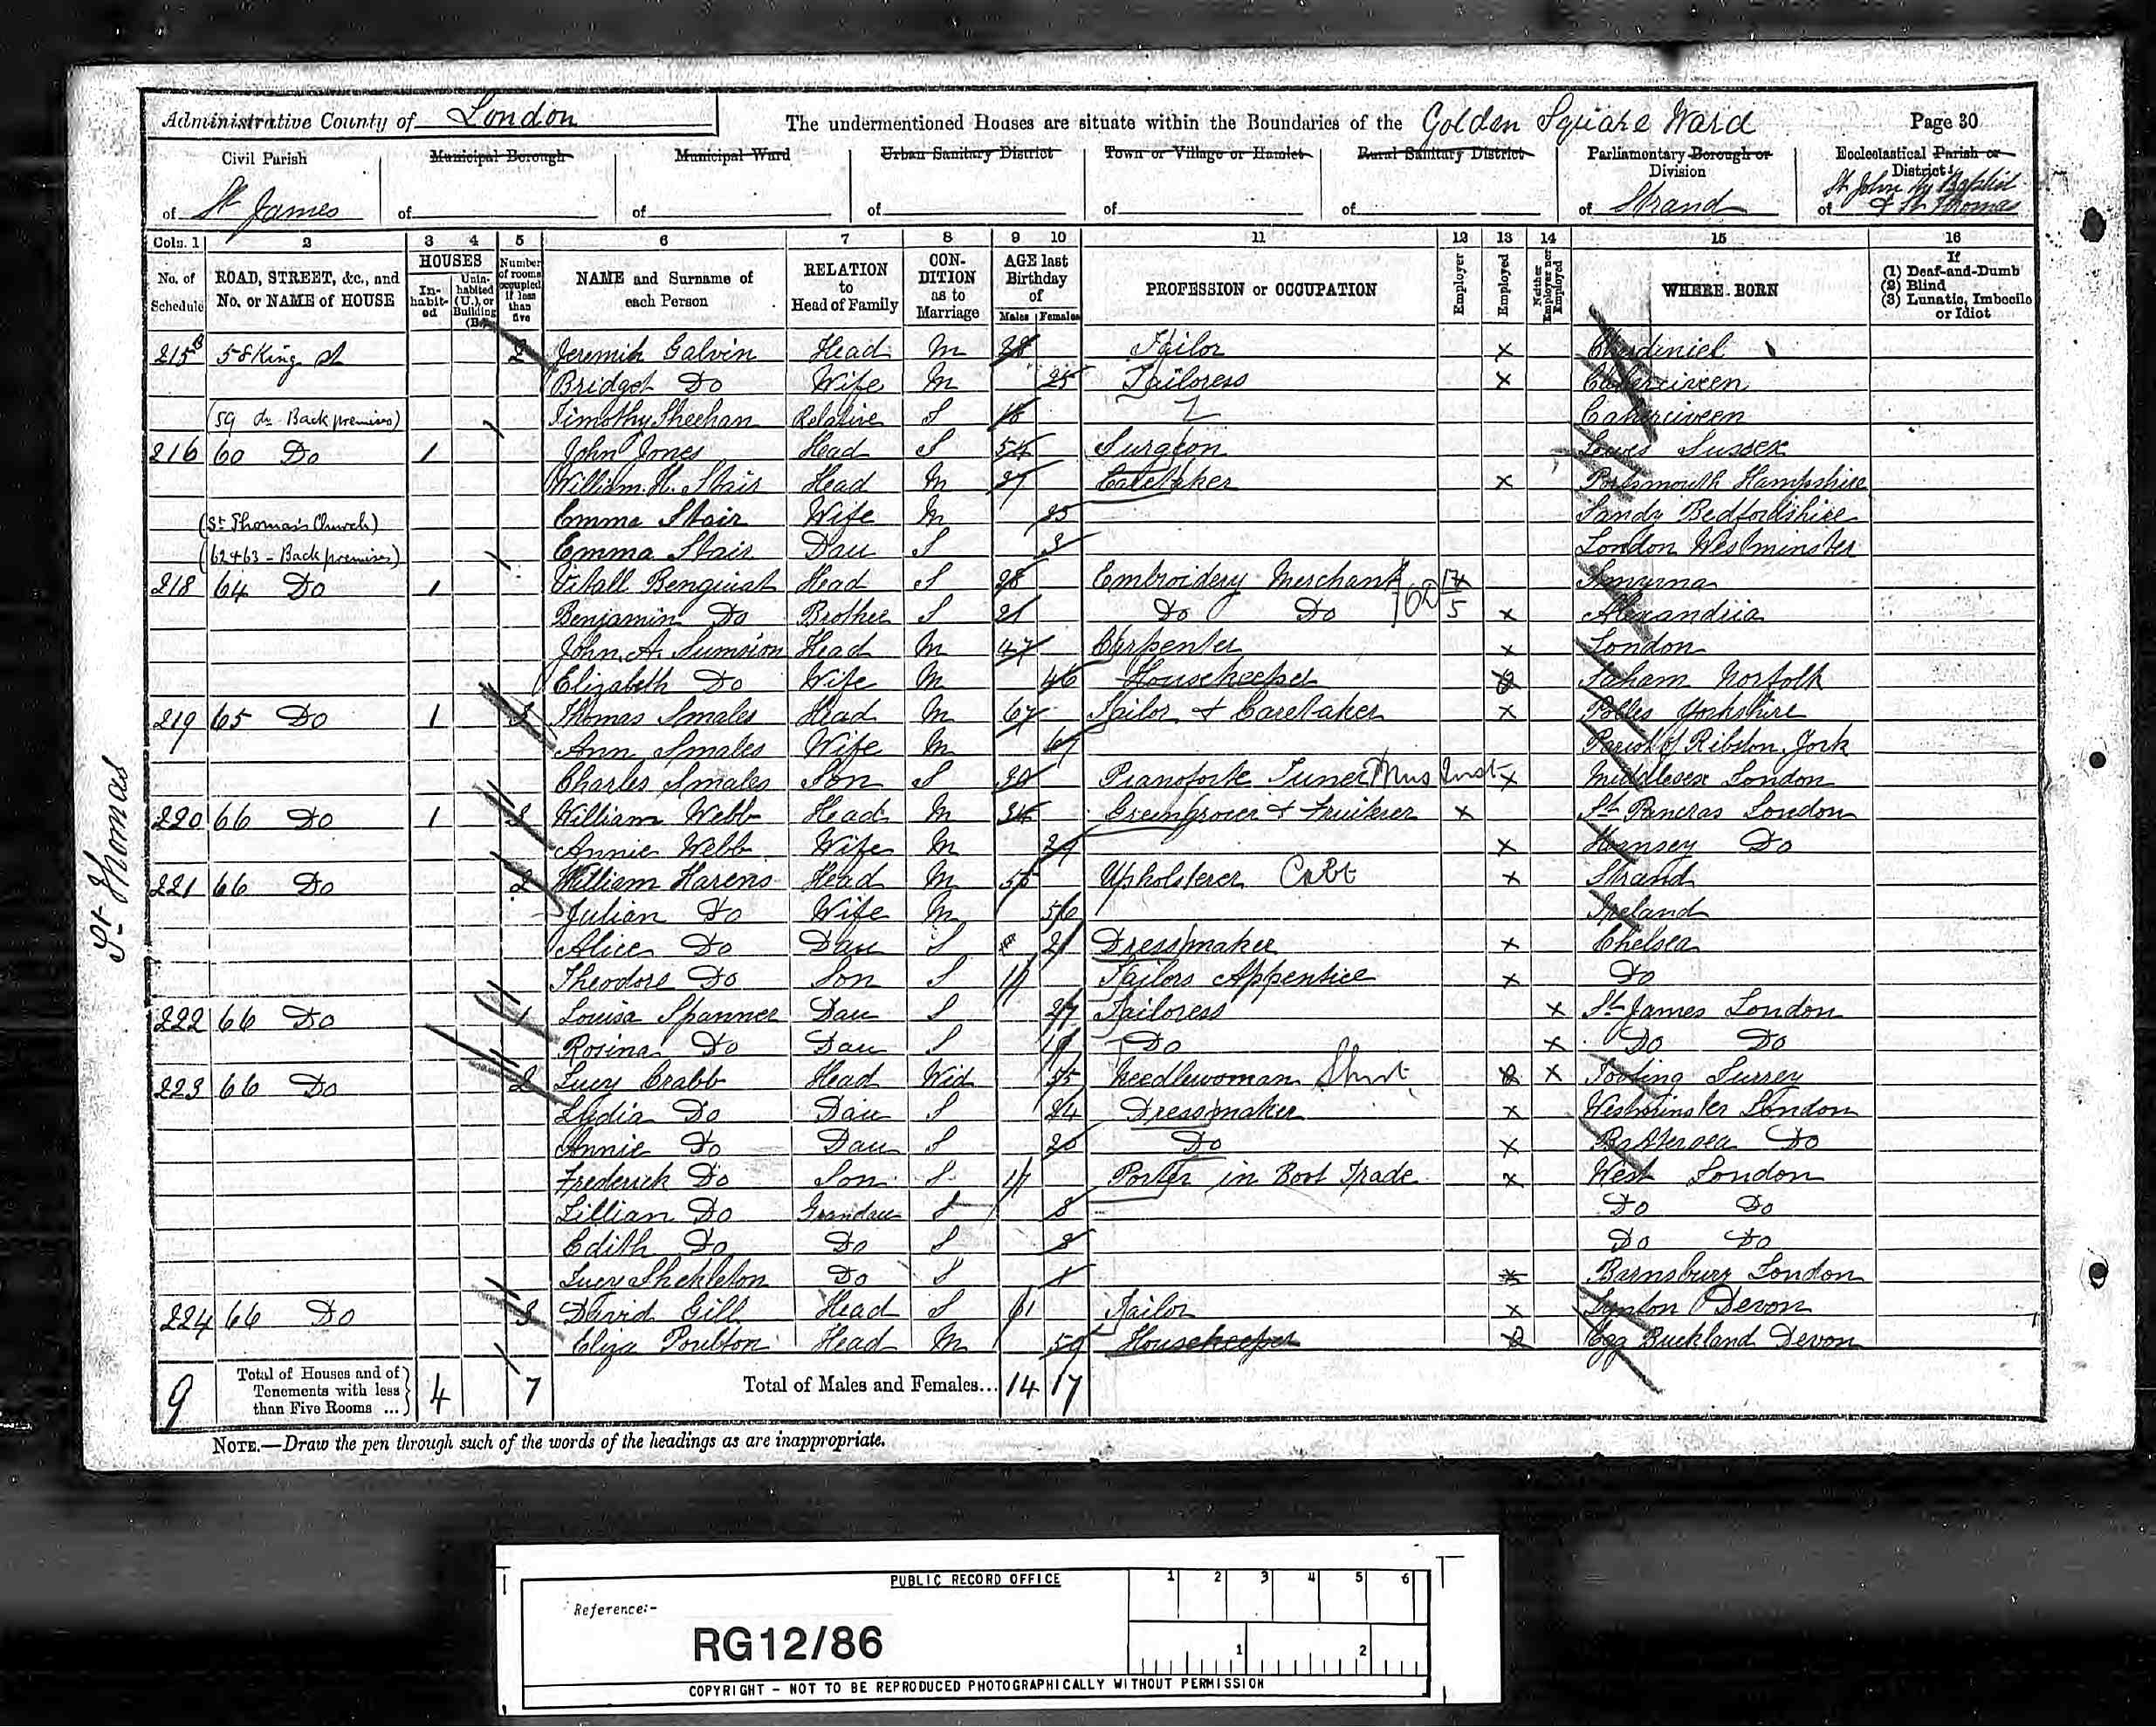 Administrative County of London The undermentioned Houses are situate within the Boundaries of the Golden Square Ward Page 30
Civil Parish Municipal Borough Municipal Ward Urban Sanitary District Town or Village or Hamlet Rural Sanitary District Parliamentary Borough or Division Ecclesiastical Parish or District
of St James of of of of of of Strand of St John by Baptist & St Thomas
Cols. 1 2 3 4 5 6 7 8 9 10 11 12 13 14 15 16
No. of Schedule ROAD, STREET, &c., and No. or NAME of HOUSE HOUSES Inhabited Uninhabited (U.), or Building (B.) Number of rooms occupied if less than five NAME and Surname of each Person RELATION to Head of Family CONDITION as to Marriage AGE last Birthday of Males Females PROFESSION or OCCUPATION Employer Employed Neither Employer nor Employed WHERE BORN If (1) Deaf-and-Dumb (2) Blind (3) Lunatic, Imbecile or Idiot
215 B 58 King St 2 Jeremih Galvin Head M 28 Tailor x
Bridget Do Wife M 25 Tailoress x Caherciveen
(59 do Back premises) Timothy Sheehan Relative S 18 Caherciveen
216 60 Do 1 John Jones Head S 54 Surgeon Lewes Sussex
William H. Stair Head M 27 Caretaker x Portsmouth Hampshire
(St Thomas's Church) Emma Stair Wife M 25 Sandy Bedfordshire
(62 & 63 - Back premises) Emma Stair Dau S 3 London Westminster
218 64 Do 1 Vitall Benguiat Head S 28 Embroidery Merchant Smyrna
Benjamin Do Brother S 21 Do Do 5 x Alexandria
John A. Sumsion Head M 47 Carpenter x London
Elizabeth Do Wife M 46 Housekeeper Saham Norfolk
219 65 Do 1 3 Thomas Smales Head M 67 Tailor & Caretaker x Yorkshire
Ann Smales Wife M 67 Parish of Ribston, York
Charles Smales Son S 30 Pianoforte Tuner Mus Inst x Middlesex London
220 66 Do 1 William Webb Head M 34 Greengrocer & Fruiterer x St Pancras London
Annie Webb Wife M 29 x Hornsey Do
221 66 Do 2 William Harens Head M 56 Upholsterer Cabt x Strand
Julian Do Wife M 56 Ireland
Alice Do Dau S 21 Dressmaker x Chelsea
Theodore Do Son S 14 Tailors Apprentice x Do
222 66 Do 1 Louisa Spanner Dau S 27 Tailoress x St James London
Rosina Do Dau S 19 Do x Do Do
223 66 Do 2 Lucy Crabb Head Wid 55 Needlewoman Shirt x Tooting Surrey
Lydia Do Dau S 24 Dressmaker x Westminster London
Annie Do Dau S 20 Do x Battersea Do
Frederick Do Son S 17 Porter in Boot Trade x West London
Lillian Do Grandau S 8 Do Do
Edith Do Do S 8 Do Do
Lucy Shekleton Do S 1 Barnsbury London
224 66 Do 3 David Gill Head S 61 Tailor x Lynton Devon
Eliza Poulton Head M 59 Housekeeper Egg Buckland Devon
9 Total of Houses and of Tenements with less than Five Rooms ... 4 7 Total of Males and Females... 14 17
NOTE.—Draw the pen through such of the words of the headings as are inappropriate.
St Thomas
PUBLIC RECORD OFFICE 1 2 3 4 5 6
Reference:-
RG12/86 1 2
COPYRIGHT - NOT TO BE REPRODUCED PHOTOGRAPHICALLY WITHOUT PERMISSION